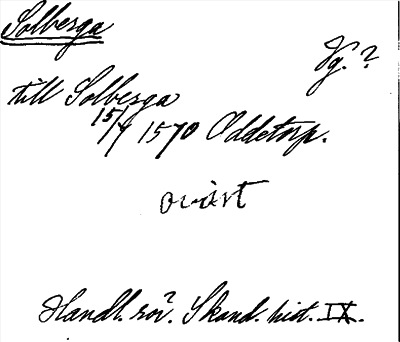 Solberga
Vg. ?
till Solberga
15/4 1570 Oddetorp.
ovisst
Handl. rör. Skand. hist. IX.